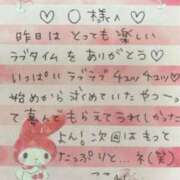 ♡ ○ 様へ ♡
昨日は とっても 楽しい
ラブタイム を ありがとう♡
いっぱい ラブラブ チュッ チュッ♡
始めから 求めていた やつ〜。
て 喜んで もらえて うれしかった
よん！ 次回は もっと
たっぷりと…ネ(笑)